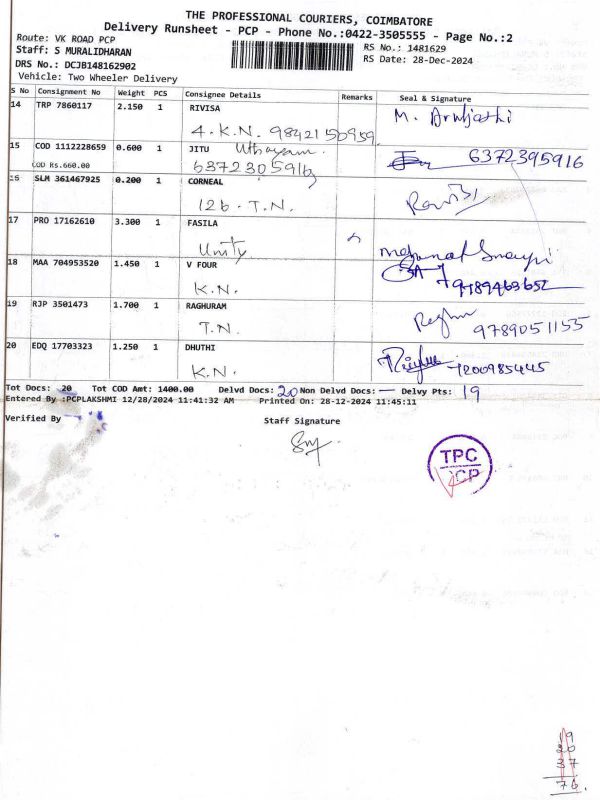 THE PROFESSIONAL COURIERS, COIMBATORE
Delivery Runsheet - PCP - Phone No.:0422-3505555 - Page No.:2
Route: VK ROAD PCP
RS No.: 1481629
Staff: S MURALIDHARAN
RS Date: 28-Dec-2024
DRS No.: DCJB148162902
Vehicle: Two Wheeler Delivery
S No Consignment No Weight PCS Consignee Details Remarks Seal & Signature
14 TRP 7860117 2.150 1 RIVISA
4. K.N. 9842150959
15 COD 1112228659 0.600 1 JITU
COD Rs.660.00 6372305916 6372395916
16 SLM 361467925 0.200 1 CORNEAL
126. T.N.
17 PRO 17162610 3.300 1 FASILA
Unity
18 MAA 704953520 1.450 1 V FOUR
K.N. 9789463652
19 RJP 3501473 1.700 1 RAGHURAM
T.N. Raghu 9789051155
20 EDQ 17703323 1.250 1 DHUTHI
K.N. 7200985445
Tot Docs: 20 Tot COD Amt: 1400.00 Delvd Docs: 20 Non Delvd Docs: — Delvy Pts: 19
Entered By :PCPLAKSHMI 12/28/2024 11:41:32 AM Printed On: 28-12-2024 11:45:11
Verified By
Staff Signature
TPC
PCP
19
20
37
76